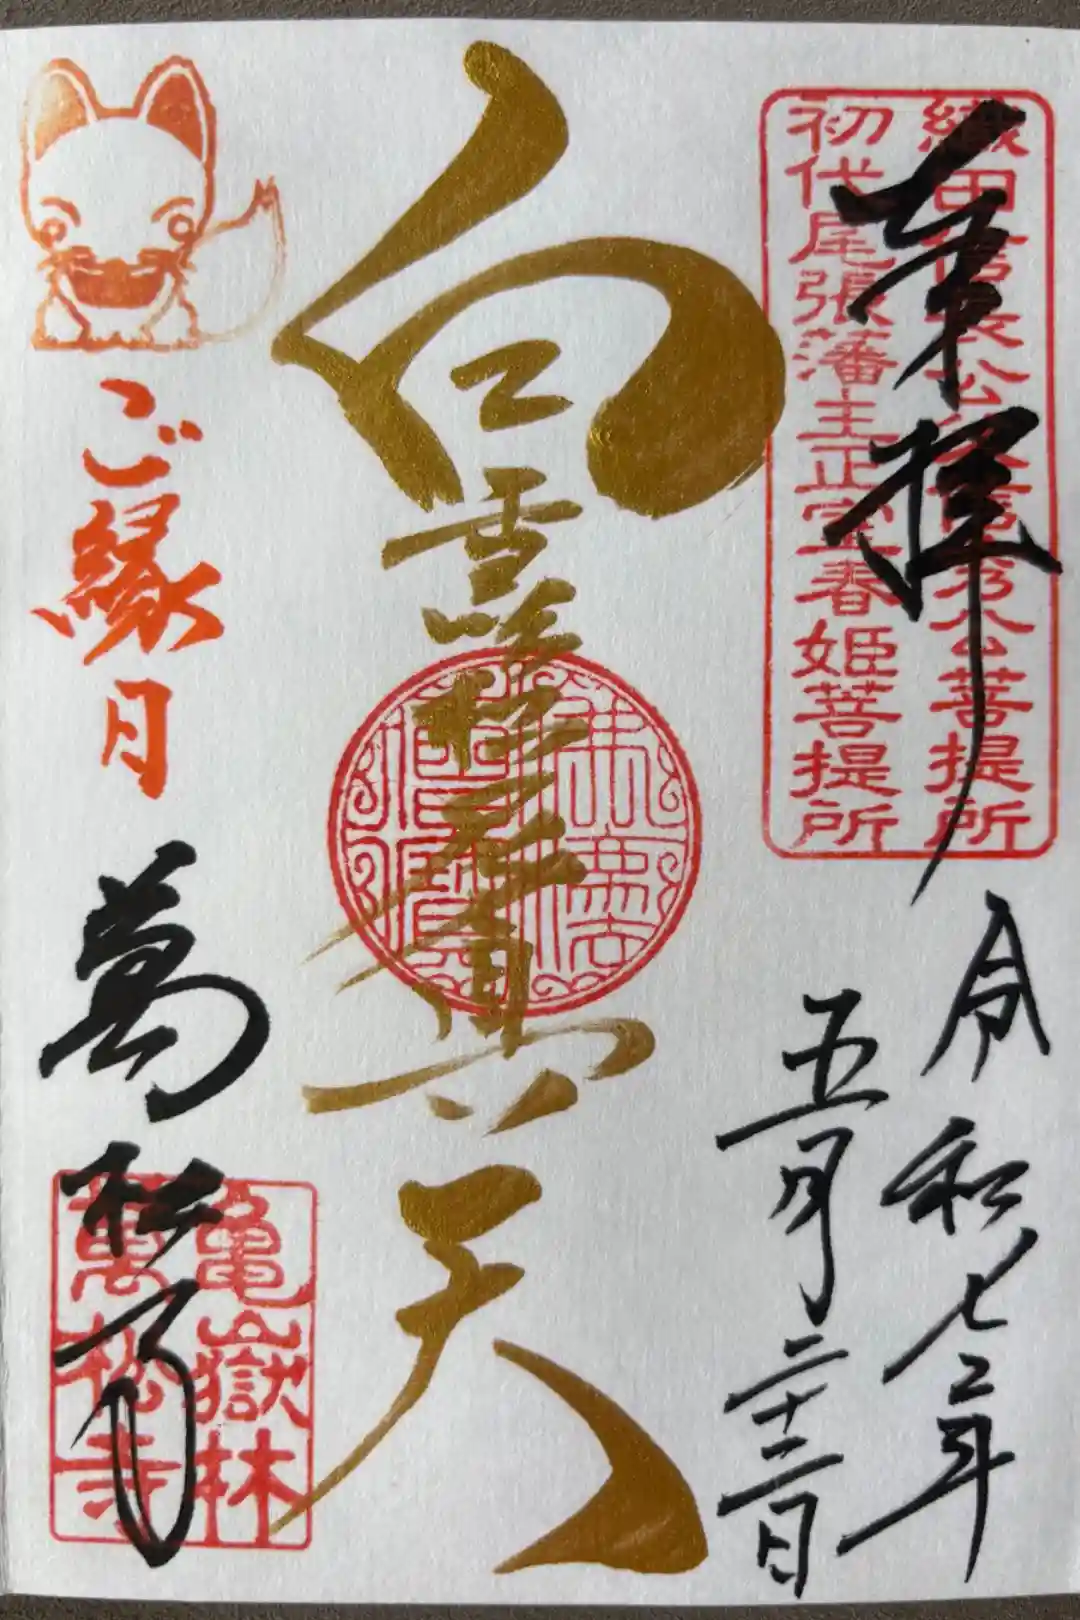 奉拝
織田信長公父信秀公菩提所
初代尾張藩主正室春姫菩提所
令和七年
五月二十二日
白雪吒枳尼眞天
佛法
僧寶
ご縁日
萬松寺
亀嶽林
萬松寺